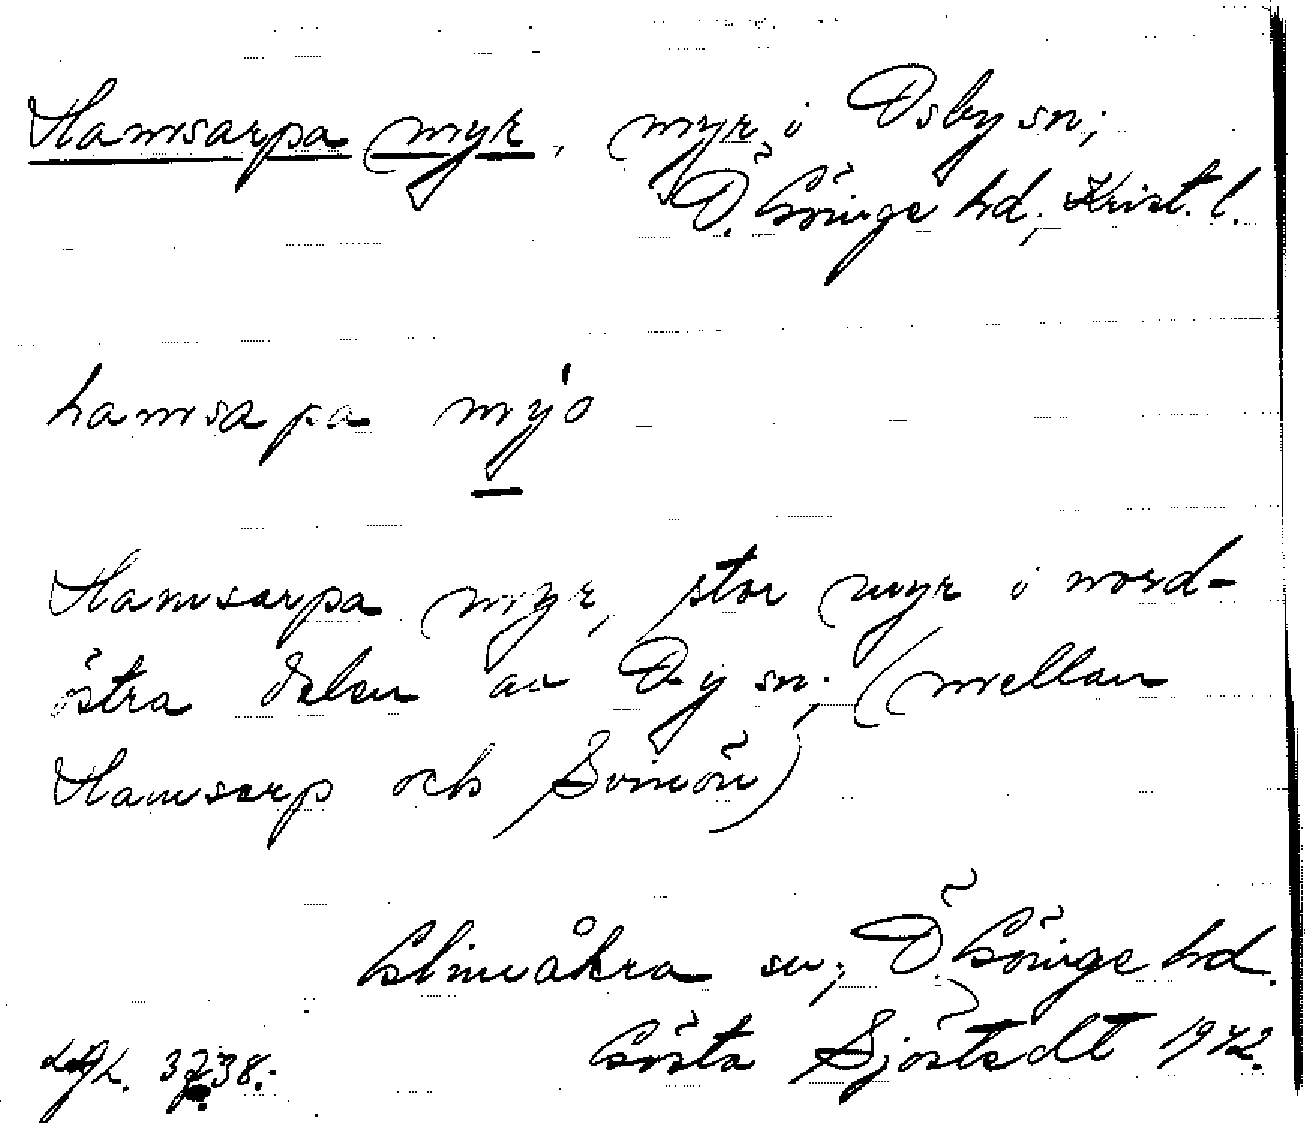 Hamsarpa myr, myr i Osby sn;
Ö. Göinge hd, Krist. l.
hamsapa myo
Hamsarpa myr, stor myr i nord-
östra delen av O-y sn. (mellan
Hamsarp och Svinön)
Glimåkra sn; Ö. Göinge hd.
Gösta Sjöstedt 1942.
3738.